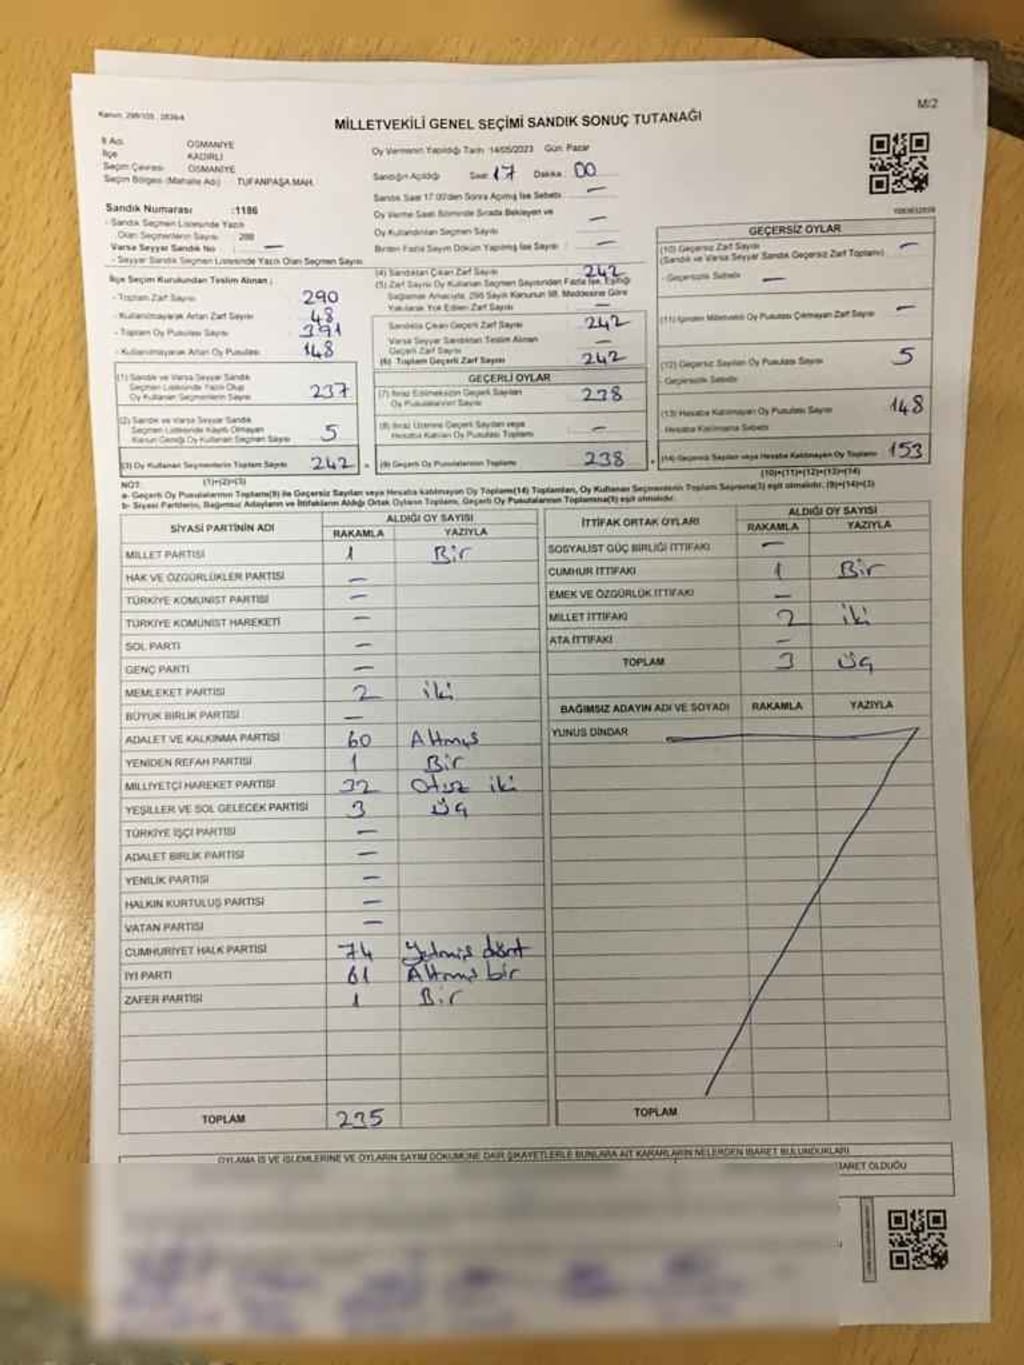 M/2
MİLLETVEKİLİ GENEL SEÇİMİ SANDIK SONUÇ TUTANAĞI
İl Adı OSMANİYE
İlçe KADİRLİ
Seçim Çevresi OSMANİYE
Seçim Bölgesi (Mahalle Adı) : TUFANPAŞA MAH.
Oy Vermenin Yapıldığı Tarih : 14/05/2023 Gün: Pazar
Sandığın Açıldığı Saat : 17 Dakika : 00
Sandık Saat 17.00'den Sonra Açılmış İse Sebebi : —
Oy Verme Saati Bitiminde Sırada Bekleyen ve
Oy Kullandırılan Seçmen Sayısı —
Birden Fazla Sayım Döküm Yapılmış İse Sayısı —
Sandık Numarası :1186
- Sandık Seçmen Listesinde Yazılı
Olan Seçmenlerin Sayısı : 288
Varsa Seyyar Sandık No : —
- Seyyar Sandık Seçmen Listesinde Yazılı Olan Seçmen Sayısı
İlçe Seçim Kurulundan Teslim Alınan ;
- Toplam Zarf Sayısı 290
- Kullanılmayarak Artan Zarf Sayısı 48
- Toplam Oy Pusulası Sayısı 391
- Kullanılmayarak Artan Oy Pusulası 148
(1) Sandık ve Varsa Seyyar Sandık
Seçmen Listesinde Yazılı Olup
Oy Kullanan Seçmenlerin Sayısı 237
(2) Sandık ve Varsa Seyyar Sandık
Seçmen Listesinde Kayıtlı Olmayan
Kanun Gereği Oy Kullanan Seçmen Sayısı 5
(3) Oy Kullanan Seçmenlerin Toplam Sayısı 242
(1)+(2)=(3)
(4) Sandıktan Çıkan Zarf Sayısı 242
(5) Zarf Sayısı Oy Kullanan Seçmen Sayısından Fazla İse, Eşitliği
Sağlamak Amacıyla, 298 Sayılı Kanunun 98. Maddesine Göre
Yakılarak Yok Edilen Zarf Sayısı —
Sandıkta Çıkan Geçerli Zarf Sayısı 242
Varsa Seyyar Sandıktan Teslim Alınan
Geçerli Zarf Sayısı —
(6) Toplam Geçerli Zarf Sayısı 242
GEÇERLİ OYLAR
(7) İtiraz Edilmeksizin Geçerli Sayılan
Oy Pusulalarının Sayısı 238
(8) İtiraz Üzerine Geçerli Sayılan veya
Hesaba Katılan Oy Pusulası Toplamı —
(9) Geçerli Oy Pusulalarının Toplamı 238
GEÇERSİZ OYLAR
(10) Geçersiz Zarf Sayısı —
(Sandık ve Varsa Seyyar Sandık Geçersiz Zarf Toplamı)
- Geçersizlik Sebebi —
(11) İçinden Milletvekili Oy Pusulası Çıkmayan Zarf Sayısı —
(12) Geçersiz Sayılan Oy Pusulası Sayısı 5
- Geçersizlik Sebebi
(13) Hesaba Katılmayan Oy Pusulası Sayısı 148
Hesaba Katılmama Sebebi
(14) Geçersiz Sayılan veya Hesaba Katılmayan Oy Toplamı 153
(10)+(11)+(12)+(13)=(14)
NOT:
a- Geçerli Oy Pusulalarının Toplamı(9) ile Geçersiz Sayılan veya Hesaba katılmayan Oy Toplamı(14) Toplamları, Oy Kullanan Seçmenlerin Toplam Sayısına(3) eşit olmalıdır. (9)+(14)=(3)
b- Siyasi Partilerin, Bağımsız Adayların ve İttifakların Aldığı Ortak Oyların Toplamı, Geçerli Oy Pusulalarının Toplamına(9) eşit olmalıdır.
SİYASİ PARTİNİN ADI ALDIĞI OY SAYISI
RAKAMLA YAZIYLA
MİLLET PARTİSİ 1 Bir
HAK VE ÖZGÜRLÜKLER PARTİSİ —
TÜRKİYE KOMÜNİST PARTİSİ —
TÜRKİYE KOMÜNİST HAREKETİ —
SOL PARTİ —
GENÇ PARTİ —
MEMLEKET PARTİSİ 2 iki
BÜYÜK BİRLİK PARTİSİ —
ADALET VE KALKINMA PARTİSİ 60 Altmış
YENİDEN REFAH PARTİSİ 1 Bir
MİLLİYETÇİ HAREKET PARTİSİ 32 Otuz iki
YEŞİLLER VE SOL GELECEK PARTİSİ 3 Üç
TÜRKİYE İŞÇİ PARTİSİ —
ADALET BİRLİK PARTİSİ —
YENİLİK PARTİSİ —
HALKIN KURTULUŞ PARTİSİ —
VATAN PARTİSİ —
CUMHURİYET HALK PARTİSİ 74 Yetmiş dört
İYİ PARTİ 61 Altmış bir
ZAFER PARTİSİ 1 Bir
TOPLAM 235
İTTİFAK ORTAK OYLARI ALDIĞI OY SAYISI
RAKAMLA YAZIYLA
SOSYALİST GÜÇ BİRLİĞİ İTTİFAKI —
CUMHUR İTTİFAKI 1 Bir
EMEK VE ÖZGÜRLÜK İTTİFAKI —
MİLLET İTTİFAKI 2 iki
ATA İTTİFAKI —
TOPLAM 3 üç
BAĞIMSIZ ADAYIN ADI VE SOYADI RAKAMLA YAZIYLA
YUNUS DİNDAR
TOPLAM
OYLAMA İŞ VE İŞLEMLERİNE VE OYLARIN SAYIM DÖKÜMÜNE DAİR ŞİKAYETLERLE BUNLARA AİT KARARLARIN NELERDEN İBARET BULUNDUKLARI
İBARET OLDUĞU